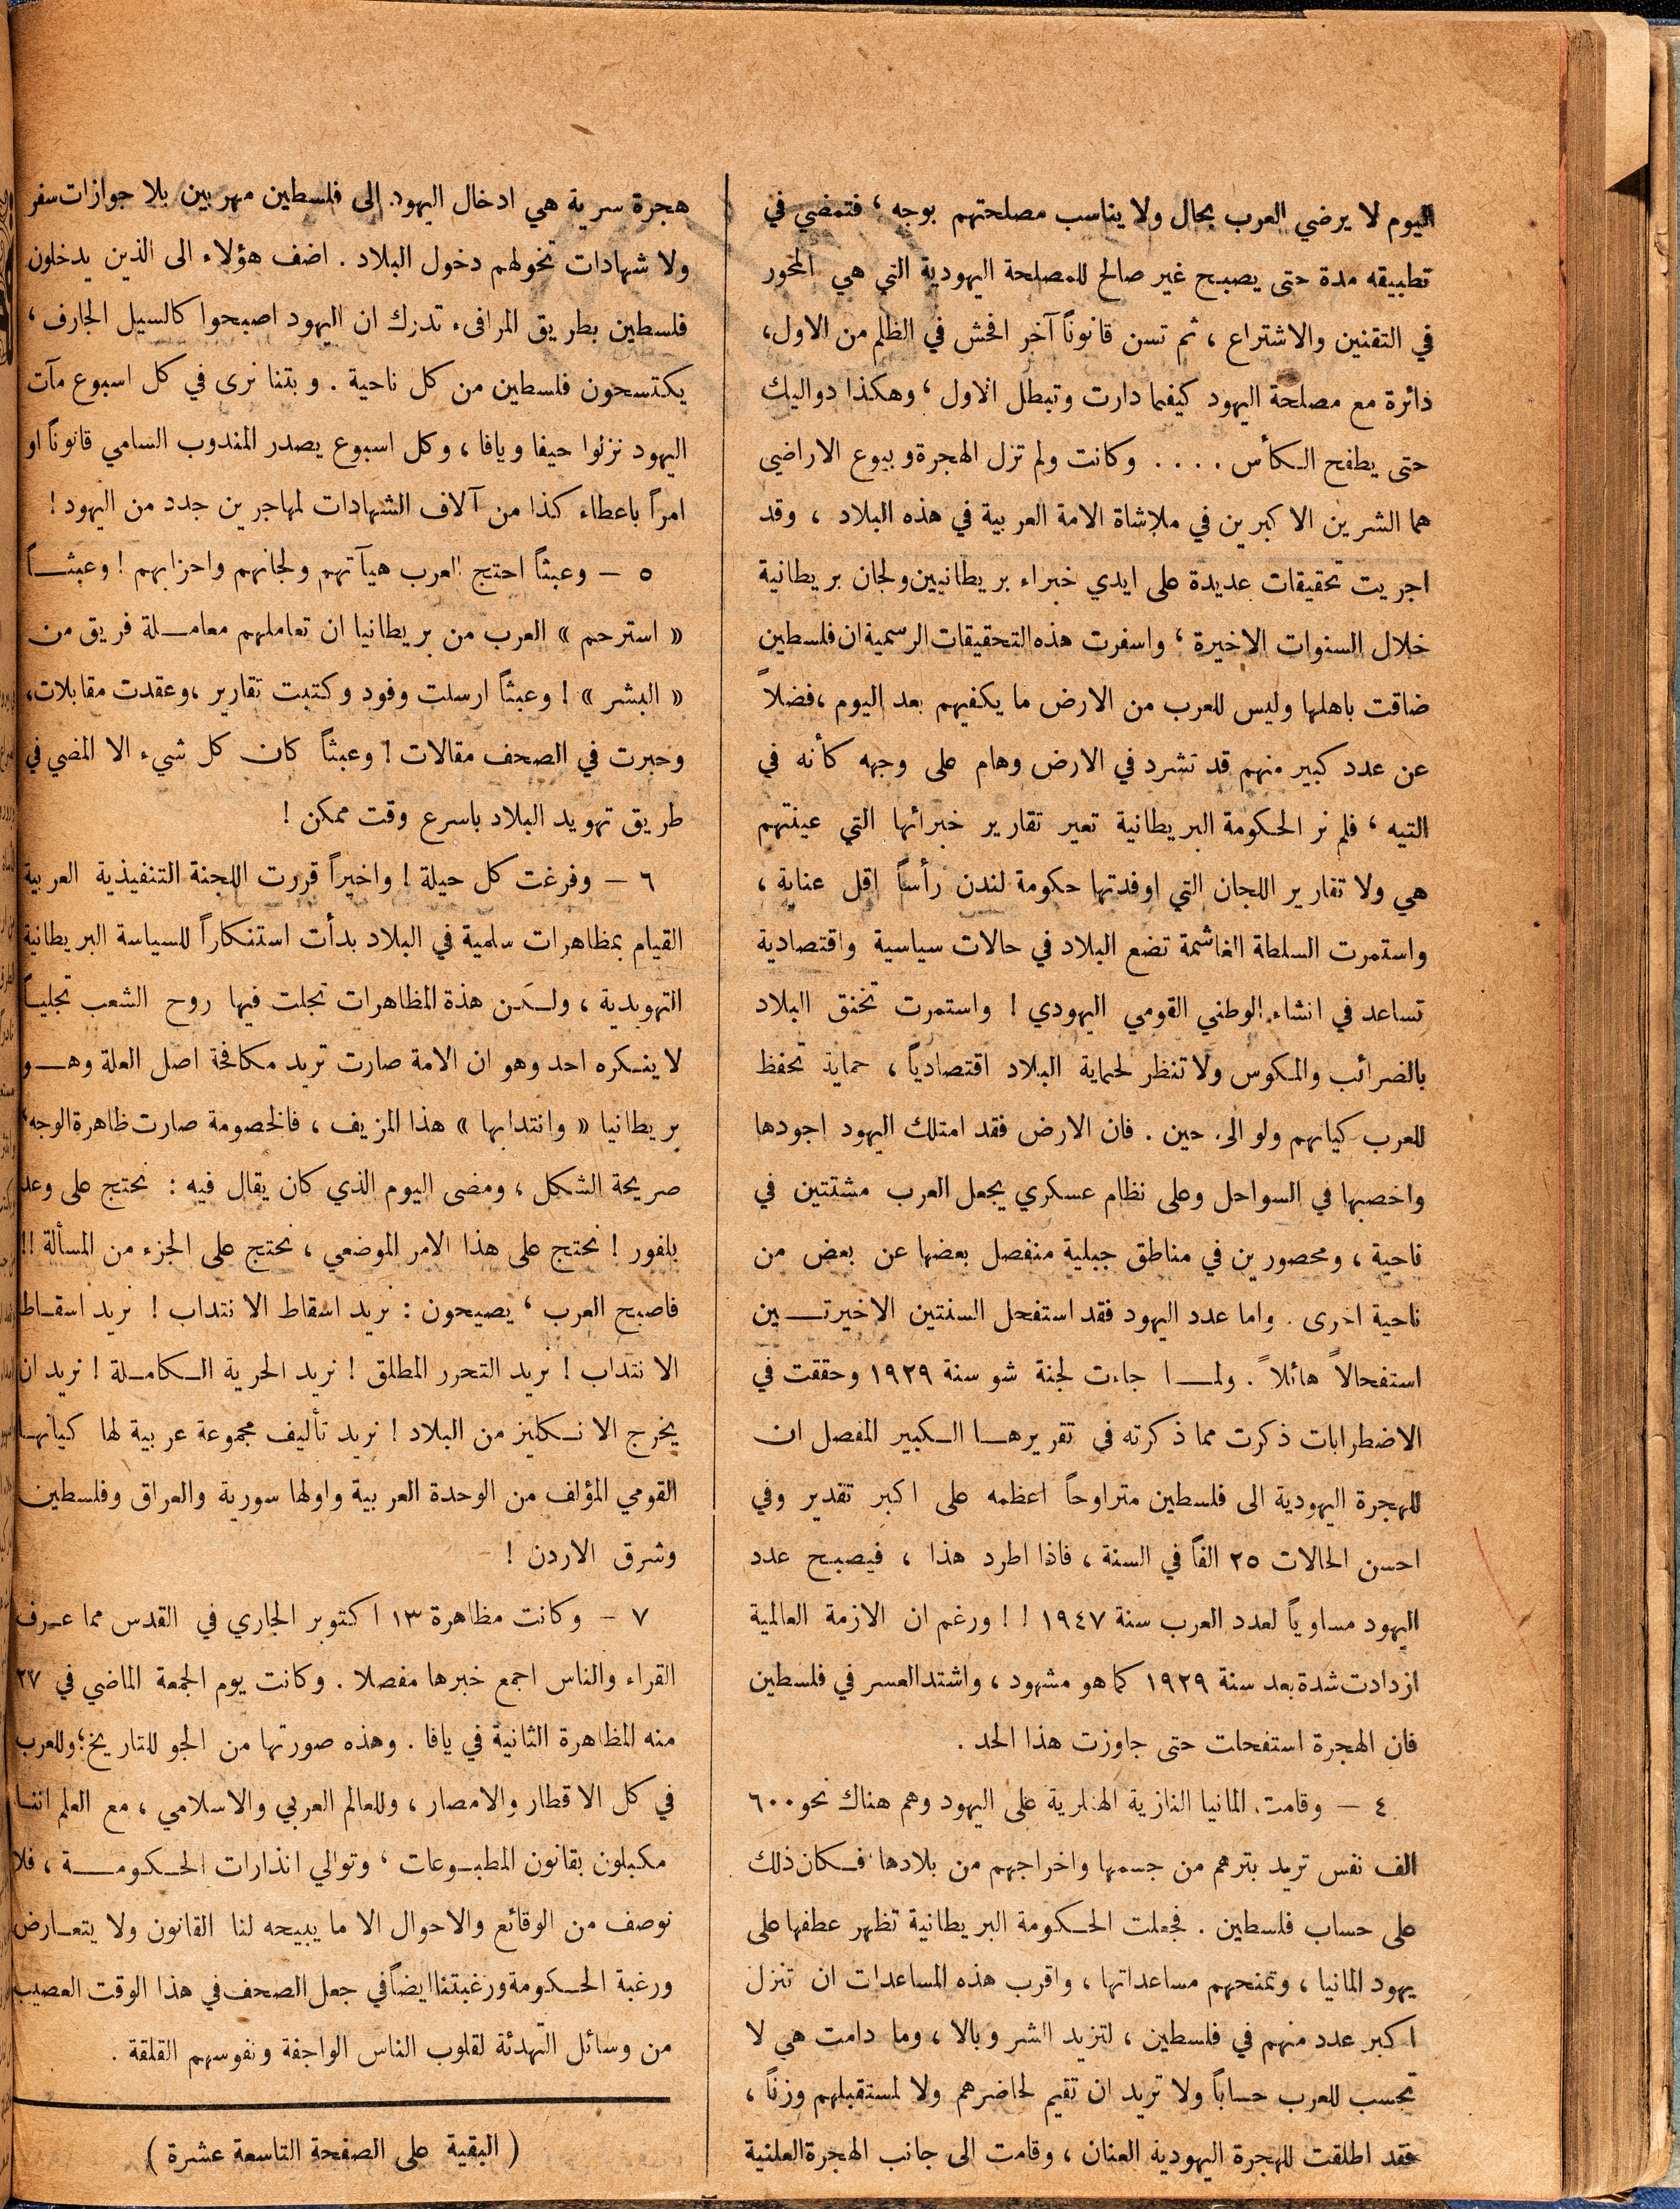 اليوم لا يرضي العرب بحال ولا يناسب مصلحتهم بوجه ، فتمضي في
تطبيقه مدة حتى يصبح غير صالح للمصلحة اليهودية التي هي المحور
في التقنين والاشتراع ، ثم تسن قانوناً آخر افحش في الظلم من الاول،
دائرة مع مصلحة اليهود كيفما دارت وتبطل الاول ، وهكذا دواليك
حتى يطفح الكأس . . . . وكانت ولم تزل الهجرة وبيوع الاراضي
هما الشرين الاكبرين في ملاشاة الامة العربية في هذه البلاد ، وقد
اجريت تحقيقات عديدة على ايدي خبراء بريطانيين ولجان بريطانية
خلال السنوات الاخيرة ، واسفرت هذه التحقيقات الرسمية ان فلسطين
ضاقت باهلها وليس للعرب من الارض ما يكفيهم بعد اليوم ، فضلاً
عن عدد كبير منهم قد تشرد في الارض وهام على وجهه كأنه في
التيه ، فلم نر الحكومة البريطانية تعير تقارير خبرائها التي عينتهم
هي ولا تقارير اللجان التي اوفدتها حكومة لندن رأساً اقل عناية ،
واستمرت السلطة الغاشمة تضع البلاد في حالات سياسية واقتصادية
تساعد في انشاء الوطني القومي اليهودي ! واستمرت تخنق البلاد
بالضرائب والمكوس ولا تنظر لحماية البلاد اقتصادياً ، حماية تحفظ
للعرب كيانهم ولو الى حين . فان الارض فقد امتلك اليهود اجودها
واخصبها في السواحل وعلى نظام عسكري يجعل العرب مشتتين في
ناحية ، ومحصورين في مناطق جبلية منفصل بعضها عن بعض من
ناحية اخرى . واما عدد اليهود فقد استفحل السنتين الاخيرتين
استفحالاً هائلاً . ولما جاءت لجنة شو سنة ١٩٢٩ وحققت في
الاضطرابات ذكرت مما ذكرته في تقريرها الكبير المفصل ان
للهجرة اليهودية الى فلسطين متراوحاً اعظمه على اكبر تقدير وفي
احسن الحالات ٢٥ الفاً في السنة ، فاذا اطرد هذا ، فيصبح عدد
اليهود مساوياً لعدد العرب سنة ١٩٤٧ ! ! ورغم ان الازمة العالمية
ازدادت شدة بعد سنة ١٩٢٩ كما هو مشهود ، واشتد العسر في فلسطين
فان الهجرة استفحلت حتى جاوزت هذا الحد .
٤ — وقامت المانيا النازية الهتلرية على اليهود وهم هناك نحو ٦٠٠
الف نفس تريد بترهم من جسمها واخراجهم من بلادها فكان ذلك
على حساب فلسطين . فجعلت الحكومة البريطانية تظهر عطفها على
يهود المانيا ، وتمنحهم مساعداتها ، واقرب هذه المساعدات ان تنزل
اكبر عدد منهم في فلسطين ، لتزيد الشر وبالا ، وما دامت هي لا
تحسب للعرب حساباً ولا تريد ان تقيم لحاضرهم ولا لمستقبلهم وزناً ،
فقد اطلقت للهجرة اليهودية العنان ، وقامت الى جانب الهجرة العلنية
هجرة سرية هي ادخال اليهود الى فلسطين مهربين بلا جوازات سفر
ولا شهادات تخولهم دخول البلاد . اضف هؤلاء الى الذين يدخلون
فلسطين بطريق المرافىء تدرك ان اليهود اصبحوا كالسيل الجارف ،
يكتسحون فلسطين من كل ناحية . وبتنا نرى في كل اسبوع مآت
اليهود نزلوا حيفا ويافا ، وكل اسبوع يصدر المندوب السامي قانوناً او
امراً باعطاء كذا من آلاف الشهادات لمهاجرين جدد من اليهود !
٥ — وعبثاً احتج العرب هيآتهم ولجانهم واحزابهم ! وعبثاً
« استرحم » العرب من بريطانيا ان تعاملهم معاملة فريق من
« البشر » ! وعبثاً ارسلت وفود وكتبت تقارير ، وعقدت مقابلات ،
وحبرت في الصحف مقالات ! وعبثاً كان كل شيء الا المضي في
طريق تهويد البلاد باسرع وقت ممكن !
٦ — وفرغت كل حيلة ! واخيراً قررت اللجنة التنفيذية العربية
القيام بمظاهرات سلمية في البلاد بدأت استنكاراً للسياسة البريطانية
التهويدية ، ولكن هذة المظاهرات تجلت فيها روح الشعب تجلياً
لا ينكره احد وهو ان الامة صارت تريد مكافحة اصل العلة وهو
بريطانيا « وانتدابها » هذا المزيف ، فالخصومة صارت ظاهرة الوجه ،
صريحة الشكل ، ومضى اليوم الذي كان يقال فيه : نحتج على وعد
بلفور ! نحتج على هذا الامر الموضعي ، نحتج على الجزء من المسألة !!
فاصبح العرب ، يصيحون : نريد اسقاط الانتداب ! نريد اسقاط
الانتداب ! نريد التحرر المطلق ! نريد الحرية الكاملة ! نريد ان
يخرج الانكليز من البلاد ! نريد تأليف مجموعة عربية لها كيانها
القومي المؤلف من الوحدة العربية واولها سورية والعراق وفلسطين
وشرق الاردن !
٧ — وكانت مظاهرة ١٣ اكتوبر الجاري في القدس مما عرف
القراء والناس اجمع خبرها مفصلا . وكانت يوم الجمعة الماضي في ٢٧
منه المظاهرة الثانية في يافا . وهذه صورتها من الجو للتاريخ ؛ وللعرب
في كل الاقطار والامصار ، وللعالم العربي والاسلامي ، مع العلم اننا
مكبلون بقانون المطبوعات ، وتوالي انذارات الحكومة ، فلا
نوصف من الوقائع والاحوال الا ما يبيحه لنا القانون ولا يتعارض
ورغبة الحكومة ورغبتنا ايضاً في جعل الصحف في هذا الوقت العصيب
من وسائل التهدئة لقلوب الناس الواجفة ونفوسهم القلقة .
( البقية على الصفحة التاسعة عشرة )